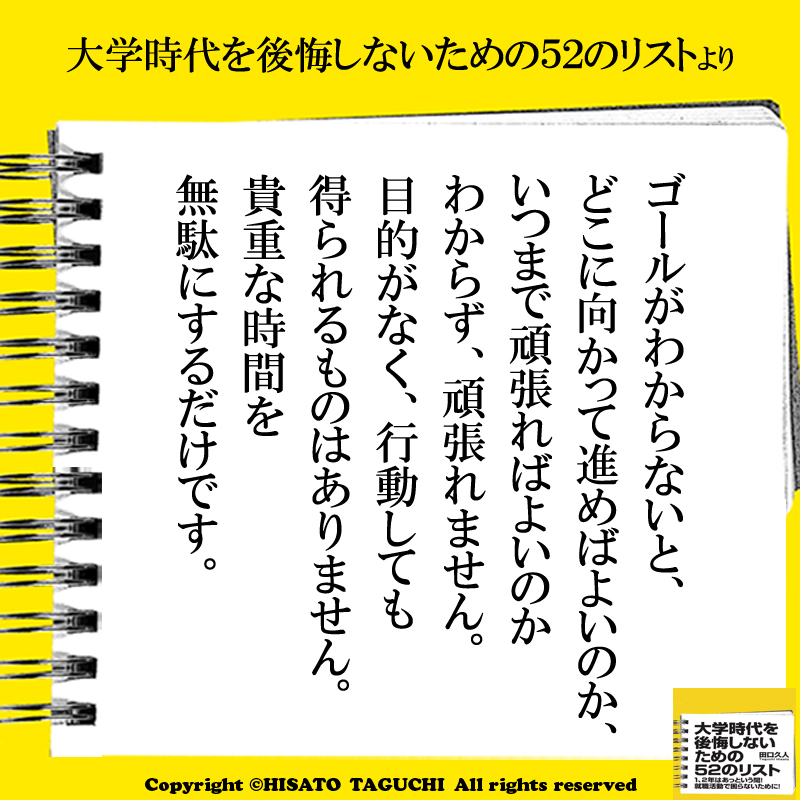 大学時代を後悔しないための52のリストより
ゴールがわからないと、
どこに向かって進めばよいのか、
いつまで頑張ればよいのか
わからず、頑張れません。
目的がなく、行動しても
得られるものはありません。
貴重な時間を
無駄にするだけです。
大学時代を
後悔しない
ための
52のリスト
田口久人
Taguchi Hisato
1、2年はあっという間!
就職活動で困らないために!
Copyright ©HISATO TAGUCHI All rights reserved